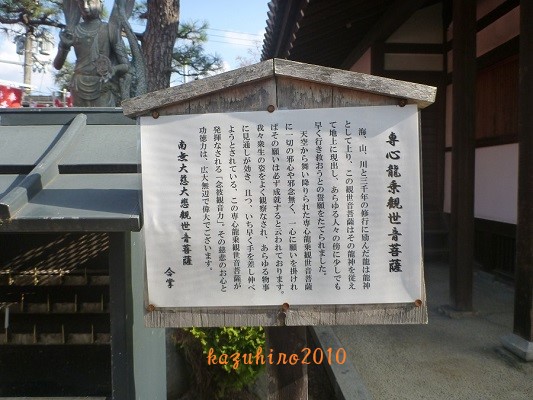 専心龍乗観世音菩薩
海、山、川と三千年の修行に励んだ龍は龍神
として上り、この観世音菩薩はその龍神を従え
て地上に現出し、あらゆる人々の傍に少しでも
早く行き救おうとの誓願をたてられました。
天空から舞い降りられた専心龍乗観世音菩薩
に一切の邪心や邪念無く、一心に願いを掛けれ
ばその願いは必ず成就すると云われております。
我々衆生の姿をよく観察なされ、あらゆる物事
に見通しが効き、且つ、いち早く手を差し伸べ
ようとされている、この専心龍乗観世音菩薩が
発揮なされる「念彼観音力」その慈悲のお心と
功徳力は、広大無辺で偉大でございます。
南無大慈大悲観世音菩薩
合掌
kazuhiro2010